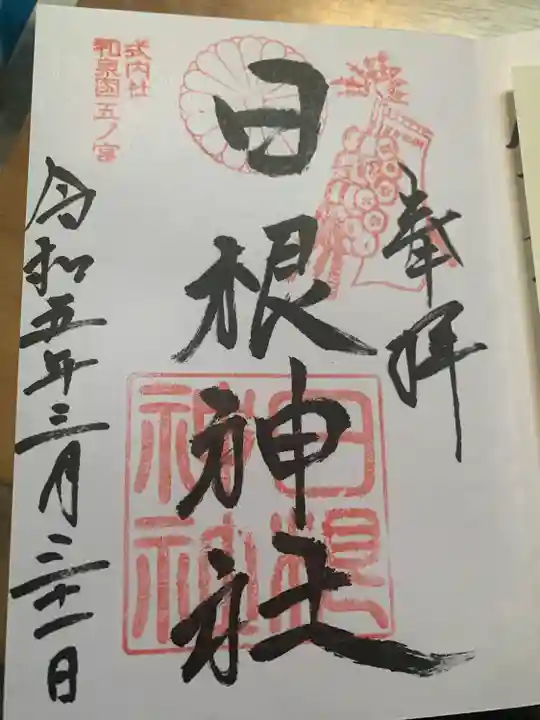 奉拝
日根神社
式内社
和泉國五ノ宮
日根神社
令和五年三月三十一日